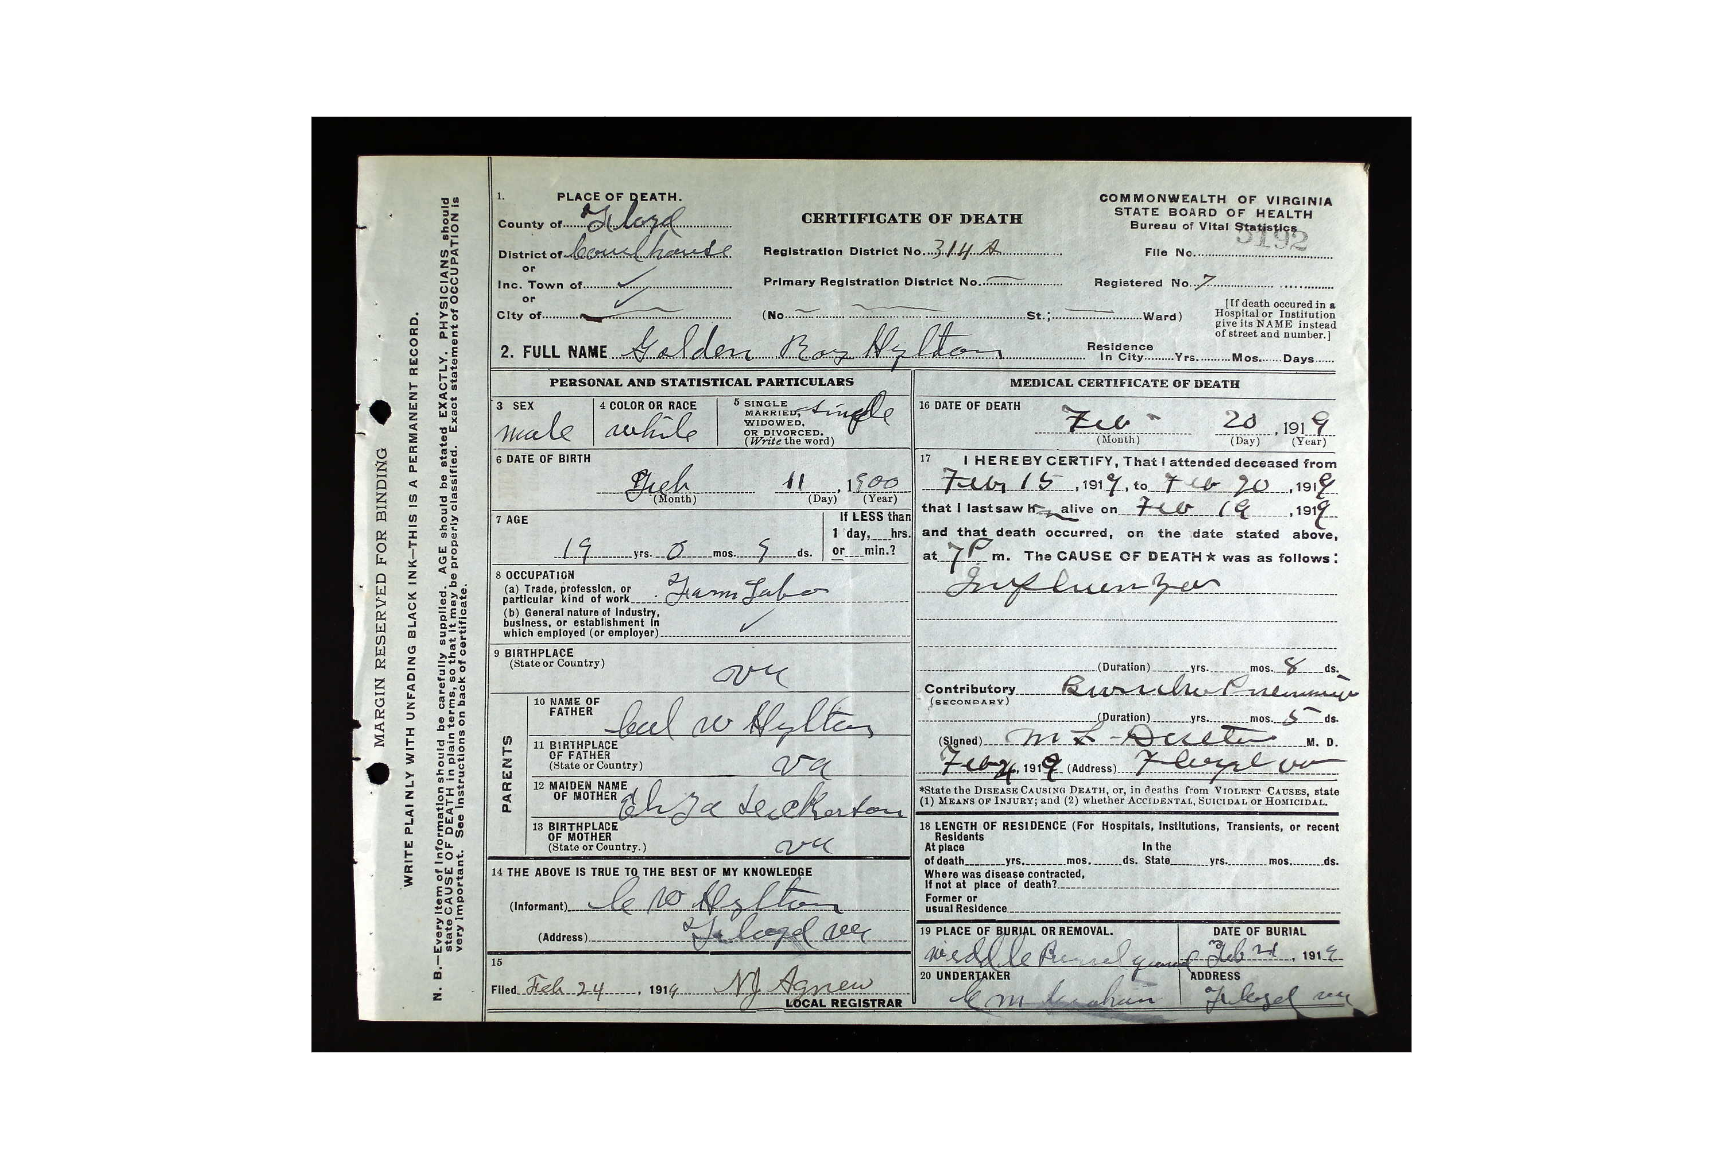 MARGIN RESERVED FOR BINDING
WRITE PLAINLY WITH UNFADING BLACK INK—THIS IS A PERMANENT RECORD.
N. B.—Every item of information should be carefully supplied. AGE should be stated EXACTLY. PHYSICIANS should
state CAUSE OF DEATH in plain terms, so that it may be properly classified. Exact statement of OCCUPATION is
very important. See instructions on back of certificate.
1. PLACE OF DEATH.
County of Floyd
District of Courthouse
or
Inc. Town of ✓
or
City of
CERTIFICATE OF DEATH
Registration District No. 314 A
Primary Registration District No. —
(No. — St.; — Ward)
COMMONWEALTH OF VIRGINIA
STATE BOARD OF HEALTH
Bureau of Vital Statistics
5192
File No.
Registered No. 7
[If death occured in a
Hospital or Institution
give its NAME instead
of street and number.]
2. FULL NAME Golden Roy Hylton
Residence
In City Yrs. Mos. Days
PERSONAL AND STATISTICAL PARTICULARS
3 SEX
male
4 COLOR OR RACE
white
5 SINGLE
MARRIED,
WIDOWED,
OR DIVORCED.
(Write the word)
single
6 DATE OF BIRTH
Feb 11, 1900
(Month) (Day) (Year)
7 AGE
19 yrs. 0 mos. 9 ds.
If LESS than
1 day, hrs.
or min.?
8 OCCUPATION
(a) Trade, profession, or
particular kind of work Farm
(b) General nature of Industry,
business, or establishment in
which employed (or employer) ✓
9 BIRTHPLACE
(State or Country)
va
PARENTS
10 NAME OF
FATHER
w Hylton
11 BIRTHPLACE
OF FATHER
(State or Country)
va
12 MAIDEN NAME
OF MOTHER
Eliza
13 BIRTHPLACE
OF MOTHER
(State or Country.)
va
14 THE ABOVE IS TRUE TO THE BEST OF MY KNOWLEDGE
(Informant) C W Hylton
(Address) Floyd va
15
Filed Feb 24, 1919 NJ Agnew
LOCAL REGISTRAR
MEDICAL CERTIFICATE OF DEATH
16 DATE OF DEATH
Feb 20, 1919
(Month) (Day) (Year)
17 I HEREBY CERTIFY, That I attended deceased from
Feb 15, 1919, to Feb 20, 1919
that I last saw h alive on Feb 19, 1919
and that death occurred, on the date stated above,
at 7 P m. The CAUSE OF DEATH★ was as follows:
Influenza
(Duration) yrs. mos. 8 ds.
Contributory Broncho Pneumonia
(SECONDARY)
(Duration) yrs. mos. 5 ds.
(Signed) M L M. D.
Feb, 1919 (Address) Floyd va
*State the DISEASE CAUSING DEATH, or, in deaths from VIOLENT CAUSES, state
(1) MEANS OF INJURY; and (2) whether ACCIDENTAL, SUICIDAL or HOMICIDAL.
18 LENGTH OF RESIDENCE (For Hospitals, Institutions, Transients, or recent
Residents
At place In the
of death yrs. mos. ds. State yrs. mos. ds.
Where was disease contracted,
If not at place of death?
Former or
usual Residence
19 PLACE OF BURIAL OR REMOVAL.
DATE OF BURIAL
Feb 21, 1919
20 UNDERTAKER
C M
ADDRESS
Floyd va